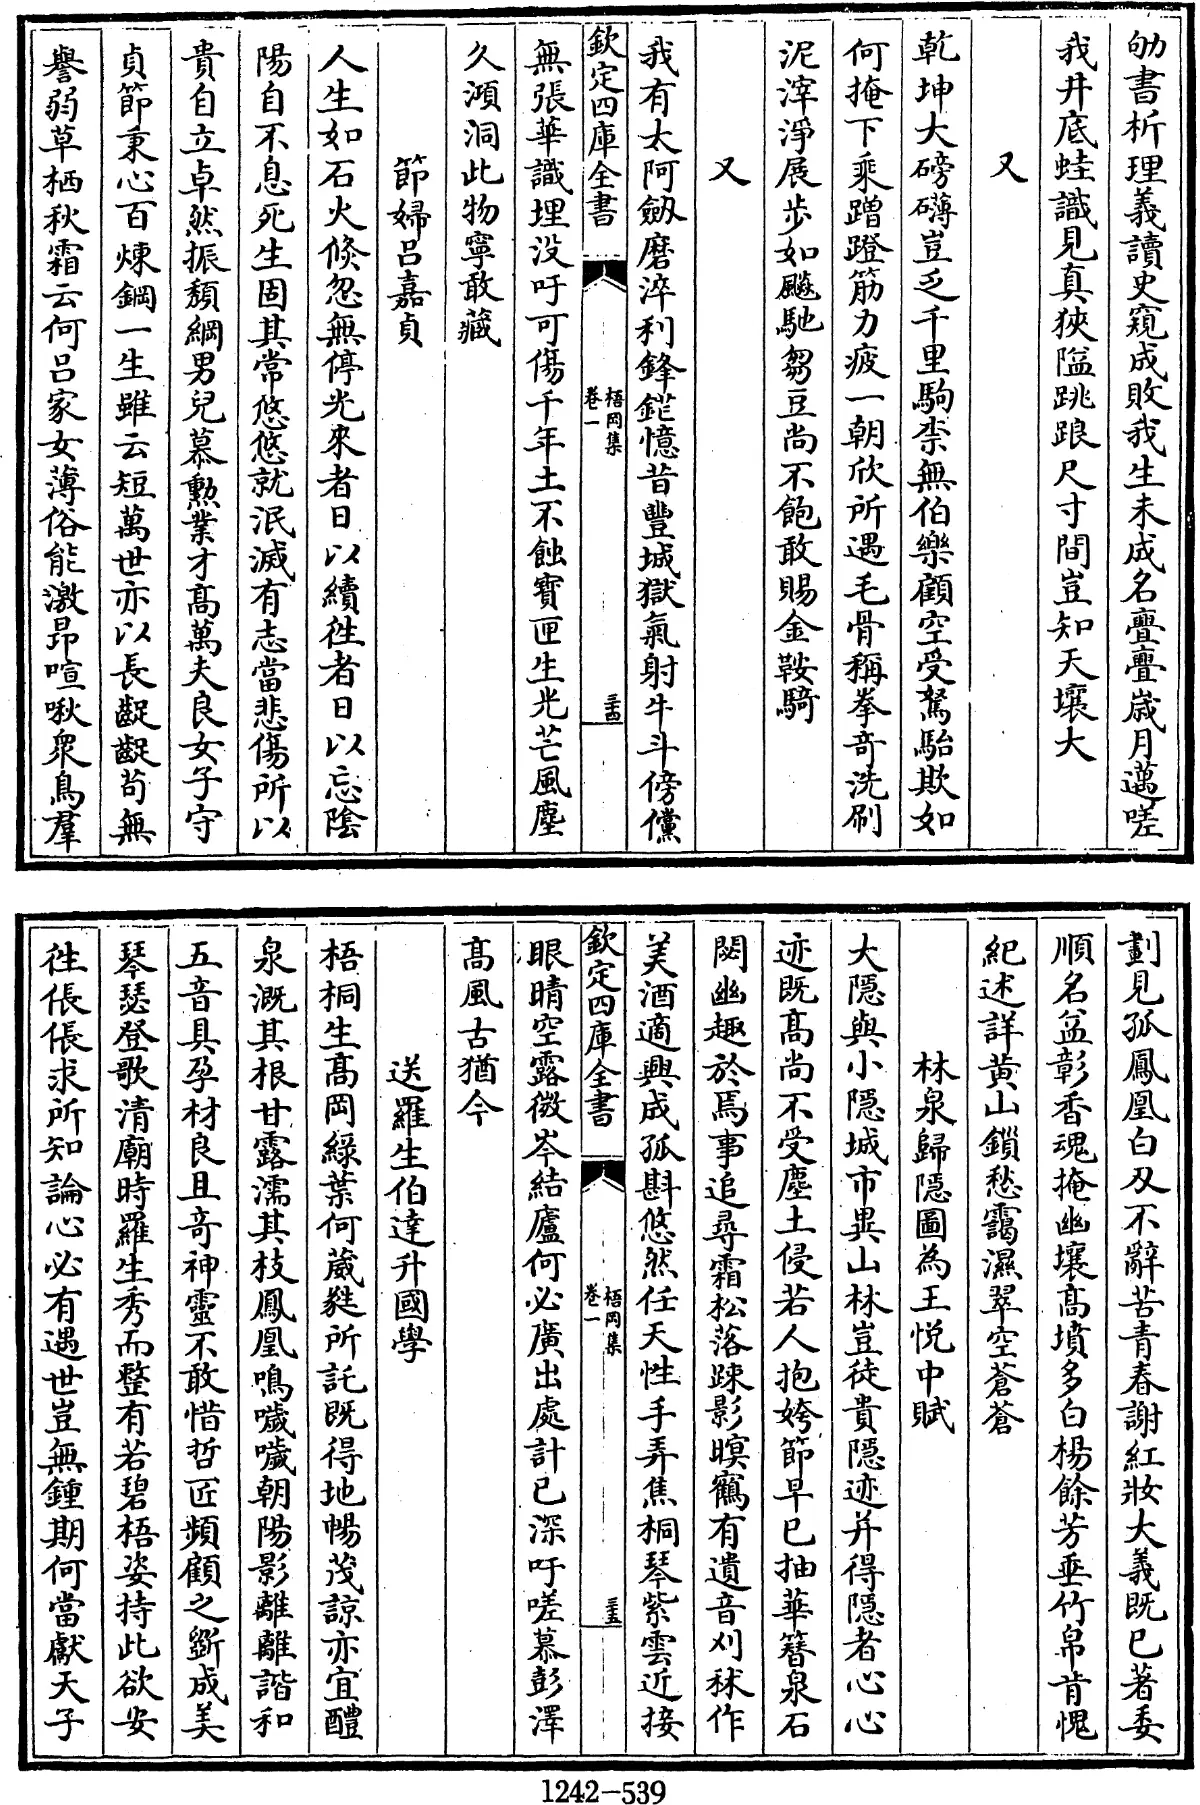 劬書析理義讀史窺成敗我生未成名亹亹歳月邁嗟
我井底蛙識見真狹隘跳踉尺寸間豈知天壤大
又
乾坤大磅礴豈乏千里駒柰無伯樂顧空受駑駘欺如
何掩下乘蹭蹬筋力疲一朝欣所遇毛骨稱拳奇洗刷
泥滓淨展步如飈馳芻豆尚不飽敢賜金鞍騎
又
我有太阿劔磨淬利鋒鋩憶昔豐城獄氣射牛斗傍儻
欽定四庫全書
梧岡集
卷一
三十四
無張華識埋没吁可傷千年土不蝕寶匣生光芒風塵
久澒洞此物寧敢藏
節婦吕嘉貞
人生如石火倐忽無停光來者日以續徃者日以忘陰
陽自不息死生固其常悠悠就泯滅有志當悲傷所以
貴自立卓然振頽綱男兒慕勲業才髙萬夫良女子守
貞節秉心百煉鋼一生雖云短萬世亦以長齪齪苟無
譽弱草栖秋霜云何吕家女薄俗能激昻喧啾衆鳥羣
劃見孤鳳凰白刄不辭苦青春謝紅妝大義既已著委
順名益彰香魂掩幽壤髙墳多白楊餘芳垂竹帛肯愧
紀述詳黄山鎖愁靄濕翠空蒼蒼
林泉歸隠圖為王悦中賦
大隠與小隠城市異山林豈徒貴隠迹并得隠者心心
迹既髙尚不受塵土侵若人抱姱節早已抽華簪泉石
閟幽趣於焉事追尋霜松落踈影暝鶴有遺音刈秫作
美酒適興成孤斟悠然任天性手弄焦桐琴紫雲近接
欽定四庫全書
梧岡集
卷一
三十五
眼晴空露微岑結廬何必廣出處計已深吁嗟慕彭澤
髙風古猶今
送羅生伯達升國學
梧桐生髙岡緑葉何葳蕤所託既得地暢茂諒亦宜醴
泉溉其根甘露濡其枝鳳凰鳴噦噦朝陽影離離諧和
五音具孕材良且奇神靈不敢惜哲匠頻顧之斵成美
琴瑟登歌清廟時羅生秀而整有若碧梧姿持此欲安
徃倀倀求所知論心必有遇世豈無鍾期何當獻天子
1242-539